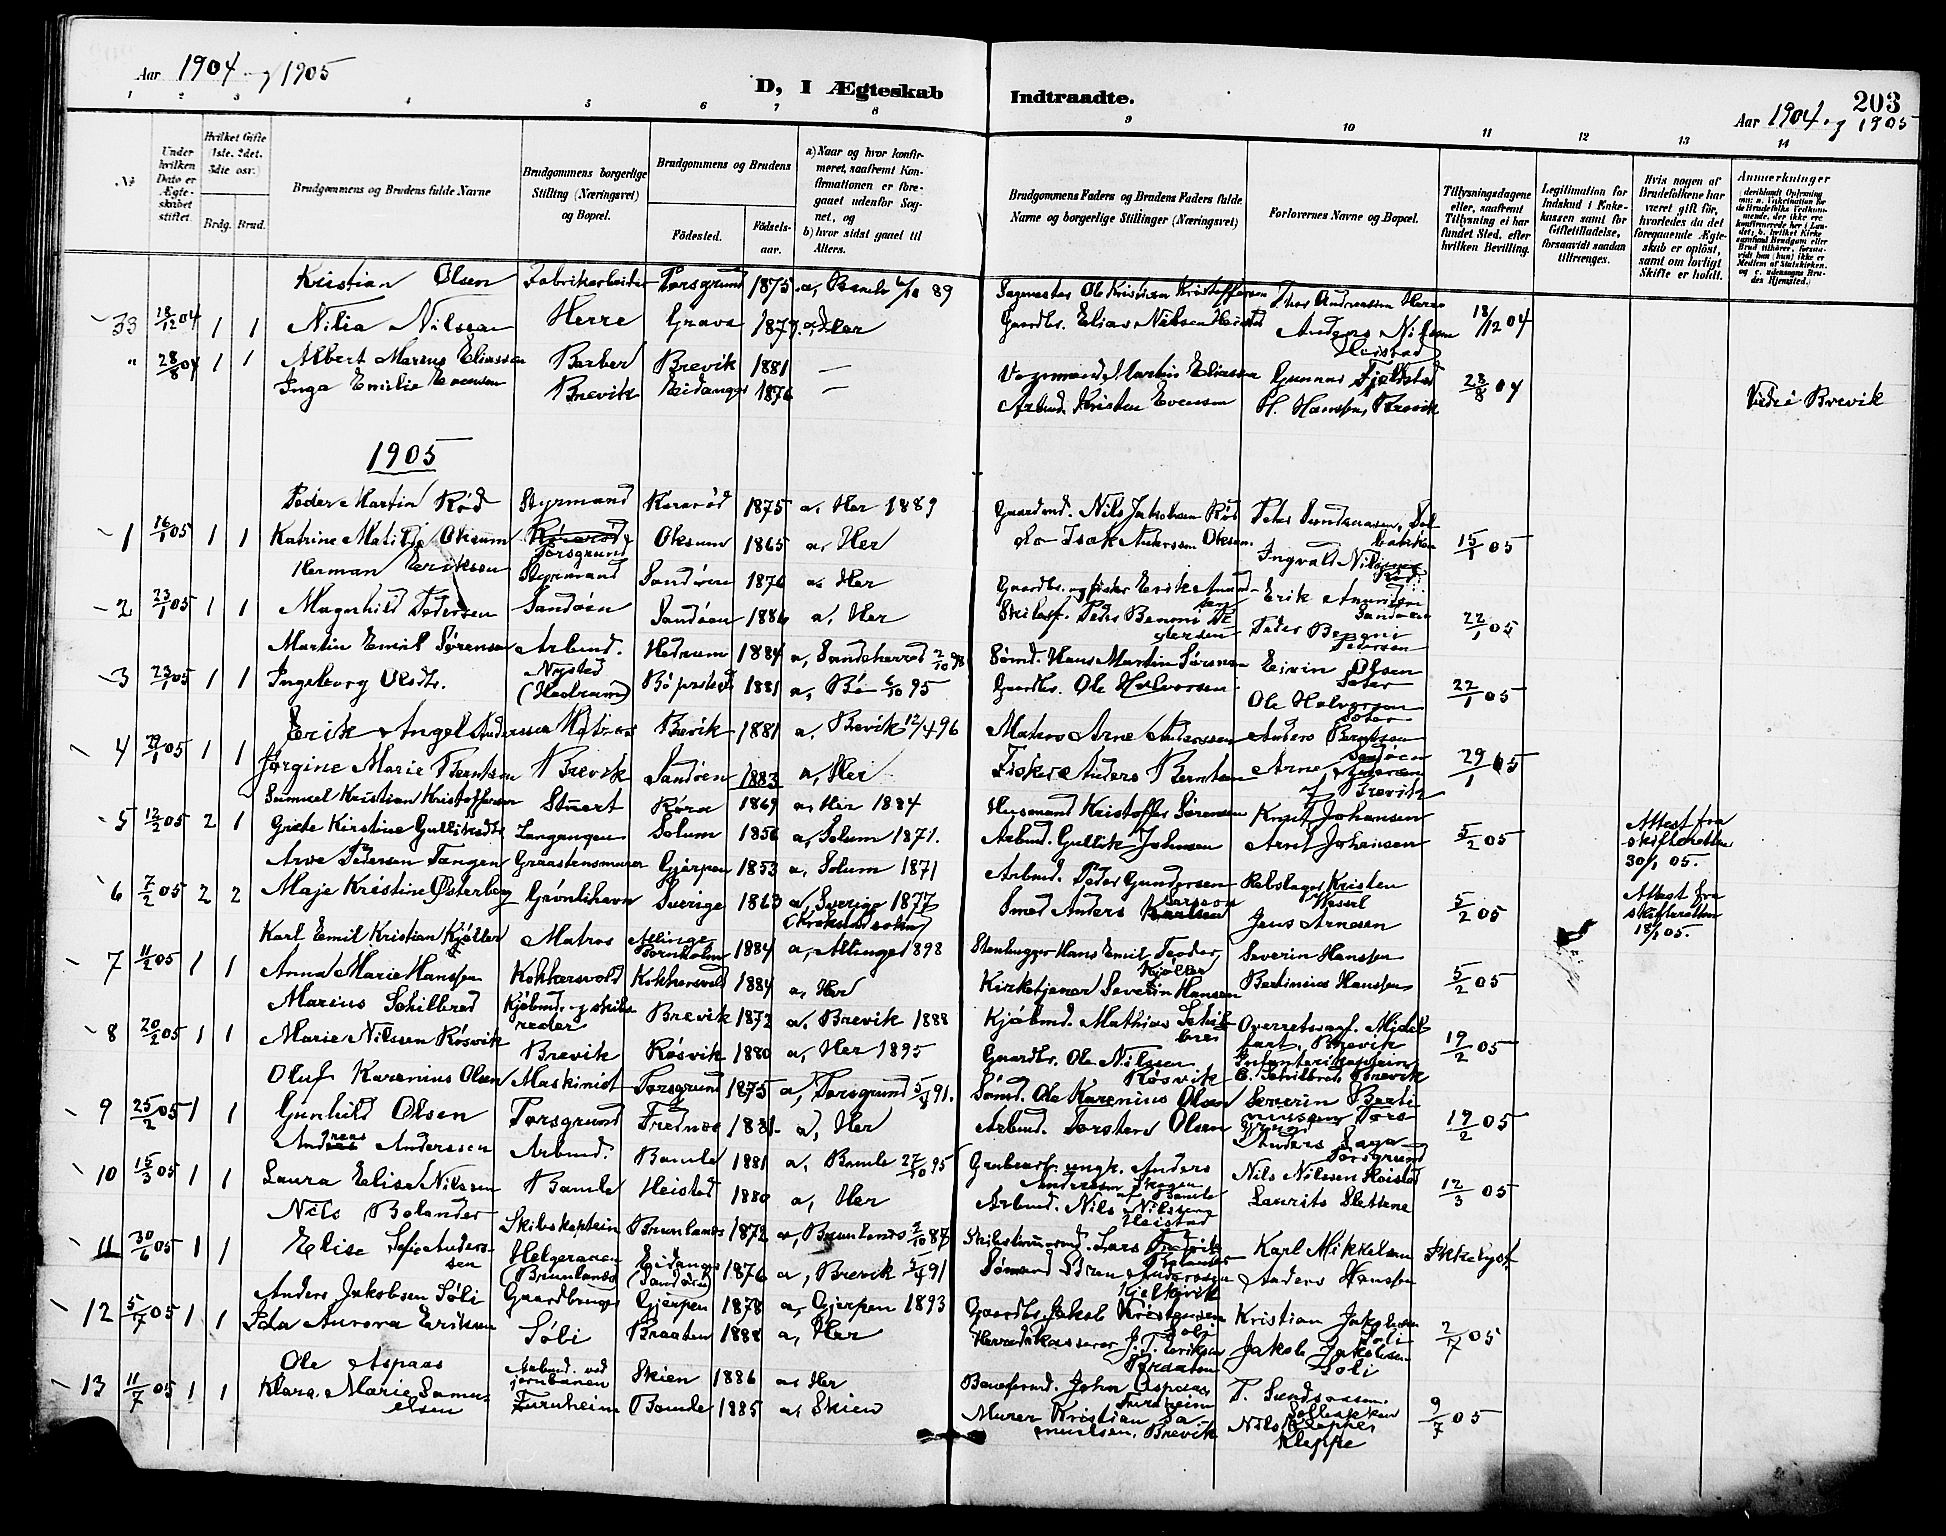 Aar 1904 og 1905
D, I Ægteskab Indtraadte.
203
Aar 1904 og 1905
1 2 3 4 5 6 7 8 9 10 11 12 13 14
No
Under hvilken Dato er Ægteskabet stiftet.
Hvilket Gifte 1ste. 2det. 3die osv.
Brdg. Brud.
Brudgommens og Brudens fulde Navne
Brudgommens borgerlige Stilling (Næringsvei) og Bopæl.
Brudgommens og Brudens
Fødested.
Fødselsaar.
a) Naar og hvor konfirmeret, saafremt Konfirmationen er foregaaet udenfor Sognet, og
b) hvor sidst gaaet til Alters.
Brudgommens Faders og Brudens Faders fulde Navne og borgerlige Stillinger (Næringsvei)
Forlovernes Navne og Bopæl.
Tillysningsdagene eller, saafremt Tillysning ei har fundet Sted, efter hvilken Bevilling.
Legitimation for Indskud i Enkekassen samt for Giftetilladelse, forsaavidt saadan tiltrænges.
Hvis nogen af Brudefolkene har været gift før, hvorledes da det foregaaende Ægteskab er opløst, samt om lovligt Skifte er holdt.
Anmerkninger
Kristian Olsen Fabrikarbeider Porsgrund 1875 a, Bamle 6/10 89 Sagmester Ole Kristian Kristoffersen Thor Andreassen Herre
33 18/12 04 1 1 Nilia Nilssen Herre Grava 1877 a, Her Gaardbr. Elias Nilsen Heistad Anders Nilsen Heistad 18/12 04
" 28/8 04 1 1 Albert Marius Eliassen Barber Brevik 1881 — Vognmand Martin Eliassen Gunnar Fjeldstad
Inga Emilie Evensen Brevik Eidanger 1876 — Arbmd. Kristen Evensen H. Hanssen, Brevik 28/8 04 Viet i Brevik
1905
Peder Martin Rød Styrmand 1875 a, Her 1889 Gaardmd. Nils Jakobsen Rød
1 16/1 05 1 1 Katrine Matilde Oksum Porsgrund Oksum 1865 a, Her do Isak Anderssen Oksum Ingvald Nilssen Rød 15/1 05
Herman Eriksen Styrmand Sandøen 1876 a, Her Gaardbr. og fisker Erik Amundsen Erik Amundsen Sandøen
2 23/1 05 1 1 Magnhild Pedersen Sandøen Sandøen 1886 a, Her Peder Benoni Pedersen Peder Benoni Pedersen 22/1 05
Martin Emil Sørensen Arbmd. Hedrum 1884 a, Sandeherred 2/10 98 Sømd. Hans Martin Sørensen Eivin Olsen
3 23/1 05 1 1 Ingeborg Olsdtr. Nysted (Hedrum) Bø 1881 a, Bø 6/10 95 Gaardbr. Ole Halvorsen Ole Halvorsen 22/1 05
Erik Angel Anderssen Matros Brevik 1881 a, Brevik 12/4 96 Matros Arne Anderssen Anders Berntsen Sandøen
4 29/1 05 1 1 Jørgine Marie Berntsen Brevik Sandøen 1883 a, Her Fisker Anders Berntsen Arne Andersen af Brevik 29/1 05
Samuel Kristian Kristoffersen Stuert Røra 1869 a, Her 1884 Husmand Kristoffer Sørensen Knut Johansen
5 12/2 05 2 1 Grete Kirstine Gulliksdtr. Langangen Solum 1856 a, Solum 1871. Arbmd. Gullik Johnsen Arnt Johansen 5/2 05 Attest fra skifteretten 30/1 05.
Arve Pedersen Tangen Graastensmurer Gjerpen 1853 a, Solum 1871 Arbmd. Peder Gundersen Rebslager Kristen Wessel
6 7/2 05 2 2 Maje Kristine Østerberg Grønlihavn Sverige 1863 a, Sverige 1877 Smed Anders Larsson Jens Arnesen 5/2 05 Attest fra skifteretten 18/1 05.
Karl Emil Kristian Kjøller Matros Allinge Bornholm 1884 a, Allinge 1898 Stenhugger Hans Emil Teodor Kjøller Severin Hanssen
7 11/2 05 1 1 Anna Marie Hanssen Kokkersvold Kokkersvold 1884 a, Her Kirketjener Severin Hansen Bertinius Hanssen 5/2 05
Marius Schilbred Kjøbmd. og skibsreder Brevik 1872 a, Brevik 1888 Kjøbmd. Mathias Schilbred Overretssagf. Midelfart, Brevik
8 20/2 05 1 1 Marie Nilssen Røsvik Brevik Røsvik 1880 a, Her 1895 Gaardbr. Ole Nilssen Røsvik Schilbred, Brevik 19/2 05
Oluf Karenius Olsen Maskinist Porsgrund 1875 a, Porsgrund 5/4 91. Sømd. Ole Karenius Olsen Severin Bertinussen Porsgrund
9 25/2 05 1 1 Gunhild Olsen Porsgrund Frednes 1881 a, Her Arbmd. Torsten Olsen Anders Porsgrund 19/2 05
Andreas Anderssen Arbmd. Bamle 1881 a, Bamle 27/10 95 Anders Anderssen Skogen af Bamle Nils Nilssen Heistad
10 15/3 05 1 1 Laura Elise Nilssen Bamle Heistad 1880 a, Her Arbmd. Nils Nilssen Heistad Laurits Slettene 12/3 05
Nils Bolander Skibskaptein Brunlanes 1872 a, Brunlanes 2/10 87 Karl Mikkelsen Ikke lyst
11 30/6 05 1 1 Elise Sofie Anderssen Helgeraaen (Brunlanes) Eidanger (Sandøen) 1876 a, Brevik 5/4 91 Sømand Søren Anderssen Anders Hanssen
Anders Jakobsen Søli Gaardbruger Gjerpen 1878 a, Gjerpen 1893 Gaardbr. Jakob Kristensen Søli Kristian Jakobsen Søli
12 5/7 05 1 1 Ida Aurora Eriksen Søli Braaten 1888 a, Her Herredskasserer J. T. Eriksen Braaten Jakob Jakobsen Søli 2/7 05
Ole Aspaas Arbmd. ved jernbanen Skien 1886 a, Her Baneformd. John Aspaas, Furuheim
13 11/7 05 1 1 Klara Marie Samuelsen Furuheim Bamle 1885 a, Skien Murer Kristian Samuelsen, Brevik Nils Kleppe, Kleppe 9/7 05